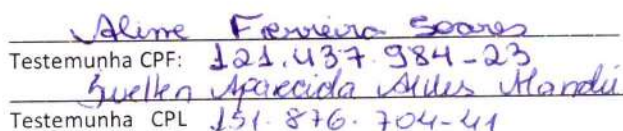 Aline Ferreira Soares
Testemunha CPF: 121.437.984-23
Suellen Aparecida Alves Mandú
Testemunha CPL 151.876.704-41